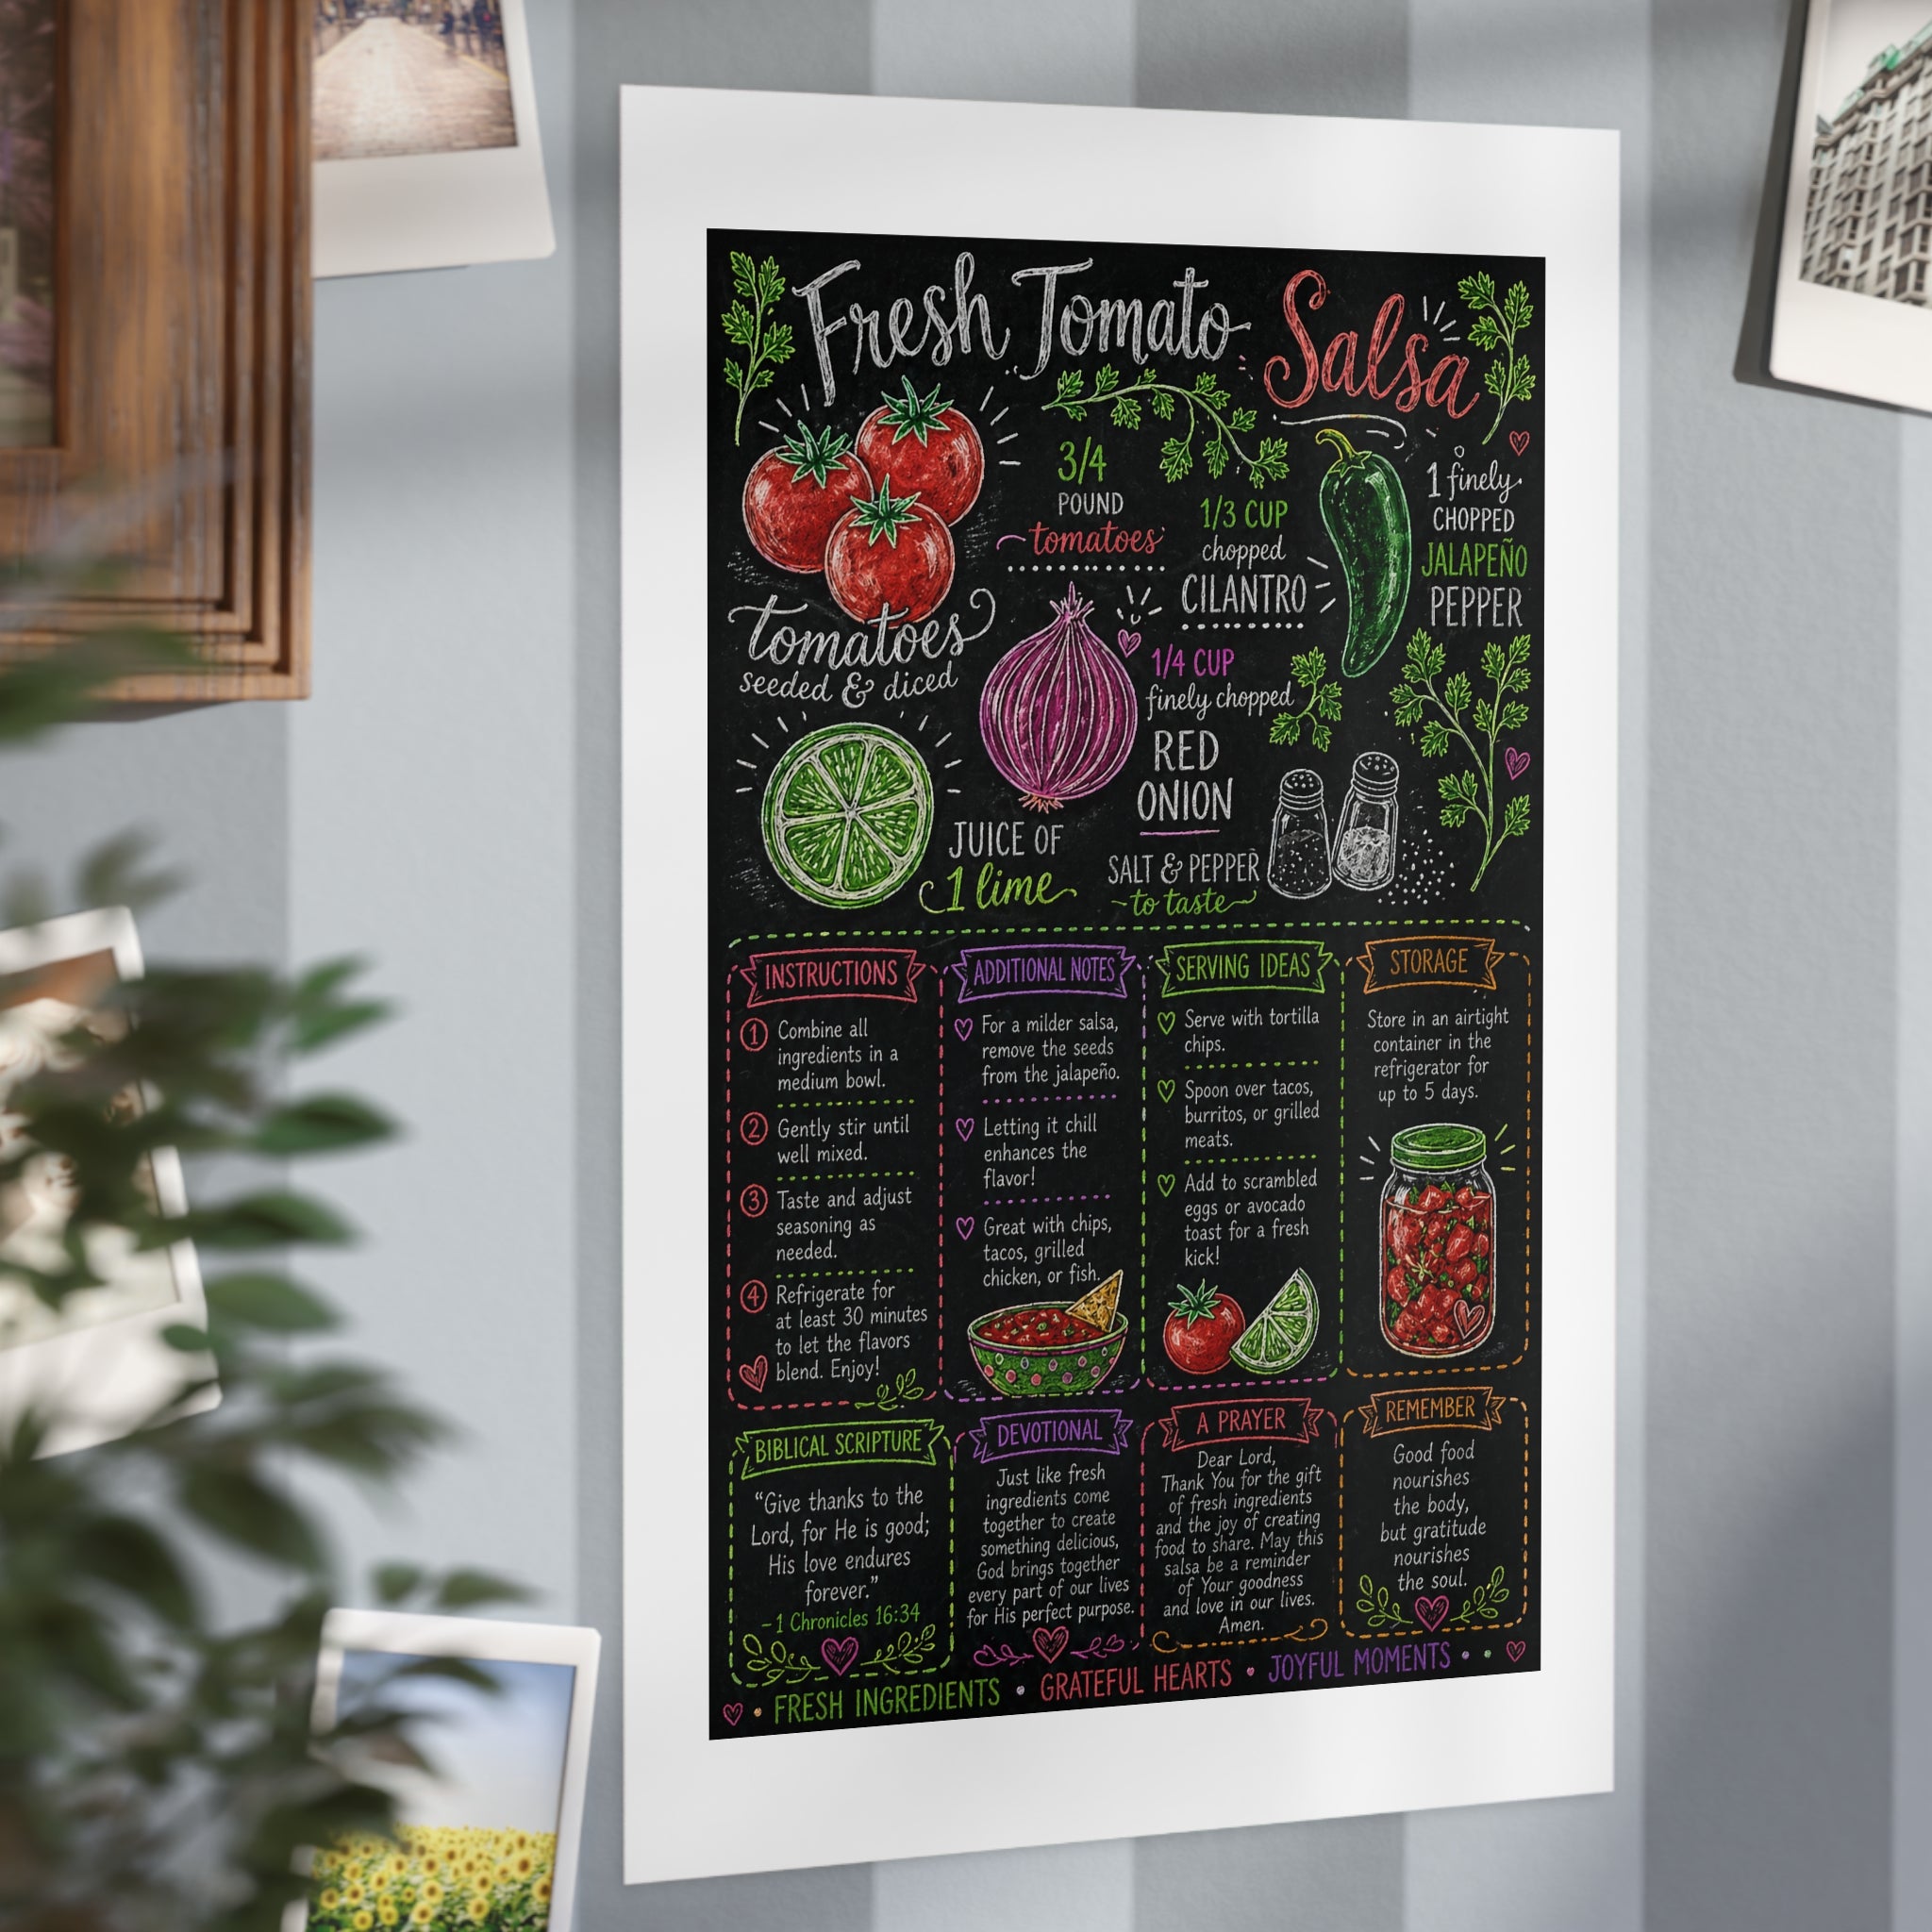 Fresh Tomato Salsa
3/4
POUND
tomatoes
tomatoes
seeded & diced
1/3 CUP
chopped
CILANTRO
1 finely
CHOPPED
JALAPEÑO
PEPPER
1/4 CUP
finely chopped
RED
ONION
JUICE OF
1 lime
SALT & PEPPER
to taste
INSTRUCTIONS
1 Combine all
ingredients in a
medium bowl.
2 Gently stir until
well mixed.
3 Taste and adjust
seasoning as
needed.
4 Refrigerate for
at least 30 minutes
to let the flavors
blend. Enjoy!
ADDITIONAL NOTES
For a milder salsa,
remove the seeds
from the jalapeño.
Letting it chill
enhances the
flavor!
Great with chips,
tacos, grilled
chicken, or fish.
SERVING IDEAS
Serve with tortilla
chips.
Spoon over tacos,
burritos, or grilled
meats.
Add to scrambled
eggs or avocado
toast for a fresh
kick!
STORAGE
Store in an airtight
container in the
refrigerator for
up to 5 days.
BIBLICAL SCRIPTURE
“Give thanks to the
Lord, for He is good;
His love endures
forever.”
–1 Chronicles 16:34
DEVOTIONAL
Just like fresh
ingredients come
together to create
something delicious,
God brings together
every part of our lives
for His perfect purpose.
A PRAYER
Dear Lord,
Thank You for the gift
of fresh ingredients
and the joy of creating
food to share. May this
salsa be a reminder
of Your goodness
and love in our lives.
Amen.
REMEMBER
Good food
nourishes
the body,
but gratitude
nourishes
the soul.
• FRESH INGREDIENTS • GRATEFUL HEARTS • JOYFUL MOMENTS • •